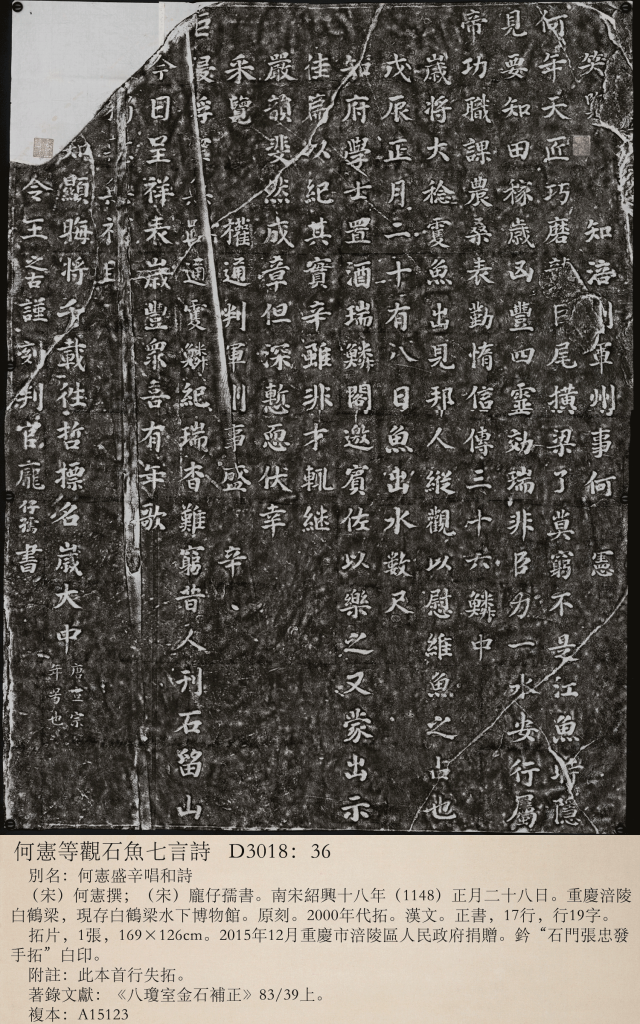 笑覽 知涪州軍州事何 憲
何年天匠巧磨礱巨尾橫梁了莫窮不是江魚時隱
見要知田稼歲凶豐四靈効瑞非臣力一水安行屬
帝功職課農桑表勤惰信傳三十六鱗中
歲將大稔雙魚出見邦人縱觀以慰維魚之占也
戊辰正月二十有八日魚出水數尺
知府學士置酒瑞鱗閣邀賓佐以樂之又蒙出示
佳篇以紀其實辛雖非才輒継
嚴韻斐然成章但深慙恧伏幸
采覽 權通判軍州事盛 辛
巨浸浮 通雙鱗紀瑞杳難窮昔人刊石留山
今日呈祥表歲豐衆喜有年歌
顯晦將千載往哲標名歲大中 唐宣宗年号也
令王之古謹刻判官龐仔孺書
何憲等觀石魚七言詩 D3018：36
別名：何憲盛辛唱和詩
（宋）何憲撰；（宋）龐仔孺書。南宋紹興十八年（1148）正月二十八日。重慶涪陵
白鶴梁，現存白鶴梁水下博物館。原刻。2000年代拓。漢文。正書，17行，行19字。
拓片，1張，169×126cm。2015年12月重慶市涪陵區人民政府捐贈。鈐“石門張忠發
手拓”白印。
附註：此本首行失拓。
著錄文獻：《八瓊室金石補正》83/39上。
複本：A15123